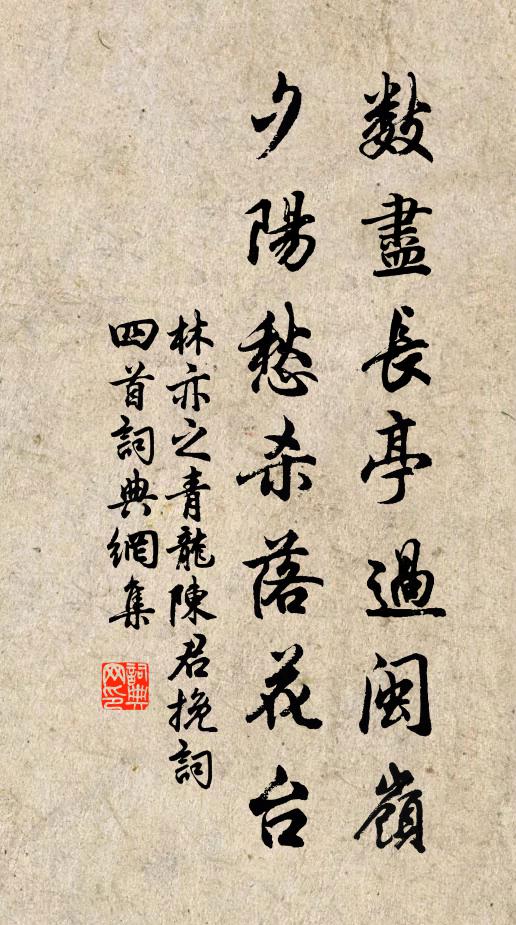 數盡長亭過閩嶺
夕陽愁杀落花台
林亦之青龍陳君挽詞
四首詞典網集
詞典
网印